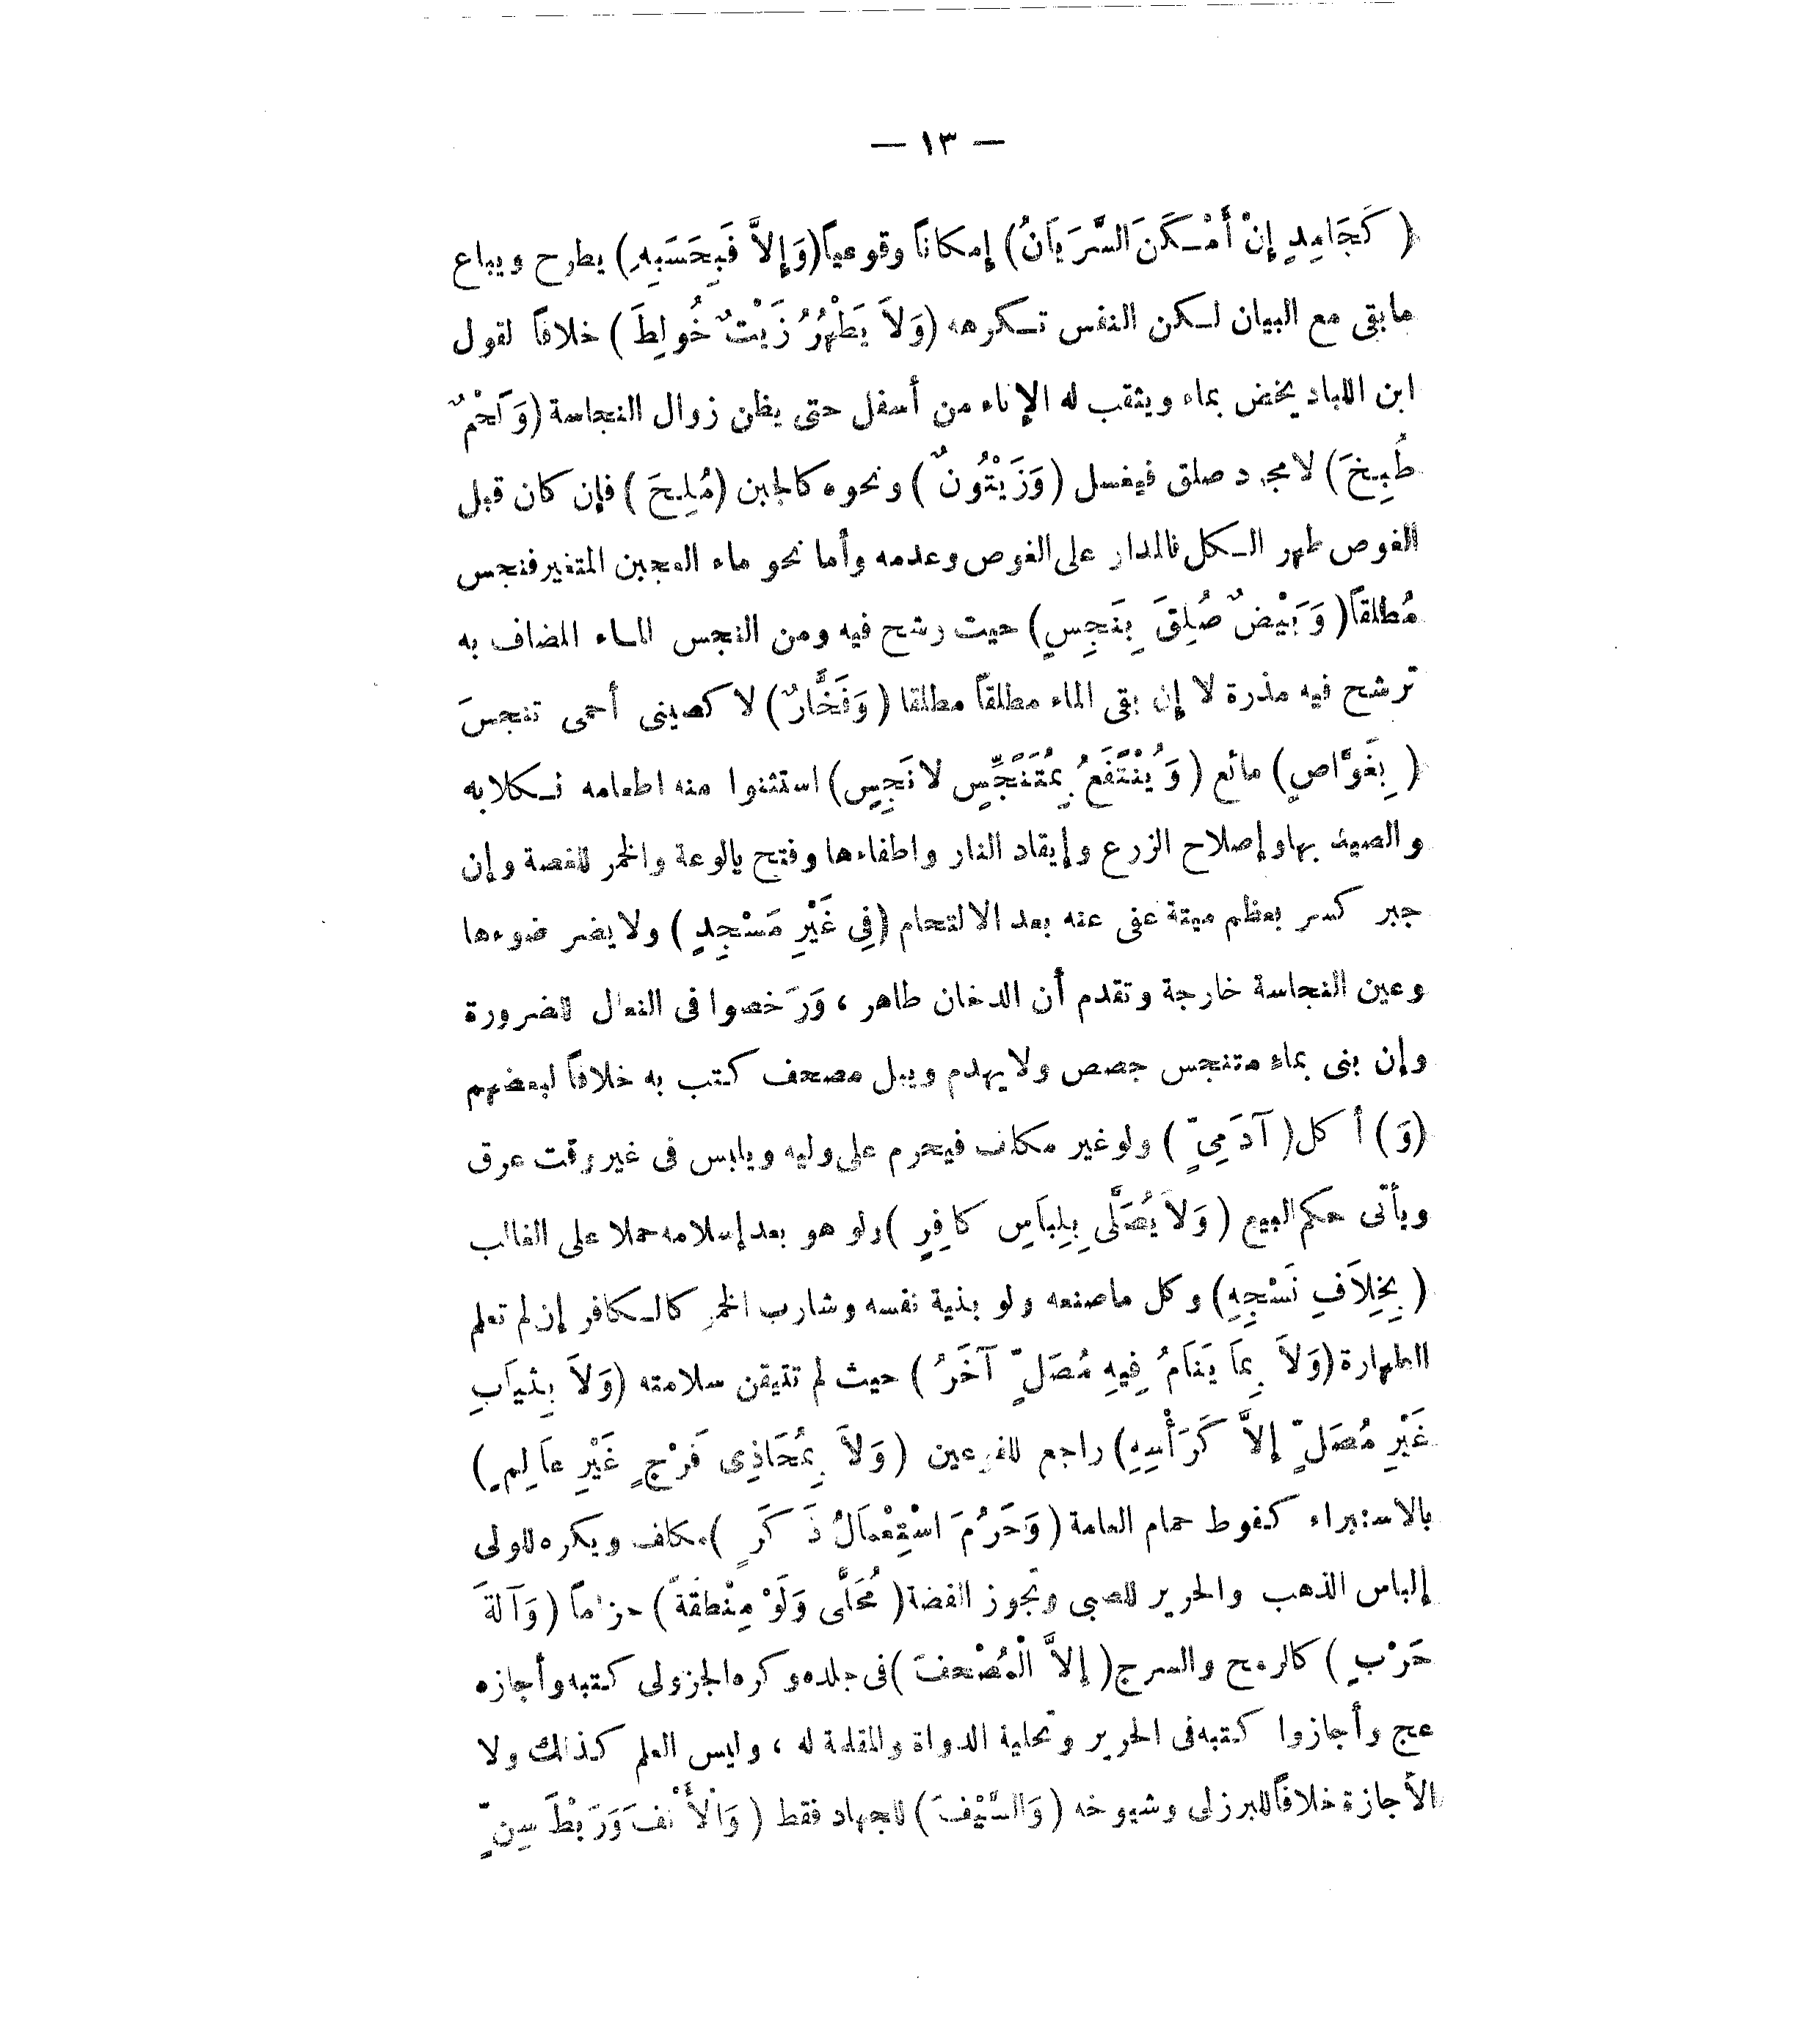 — ١٣ —
( كَجَامِدٍ إِنْ أَمْكَنَ السَّرَيَانُ) إمكاناً وقوعياً (وَإِلاَّ فَبِحَسَبِهِ) يطرح ويباع
مابقى مع البيان لكن النفس تكرهه (وَلاَ يَطْهُرُ زَيْتٌ خُولِطَ ) خلافاً لقول
ابن اللباد يخض بماء ويثقب له الإناء من أسفل حتى يظن زوال النجاسة (وَلَحْمٌ
طُبِخَ) لا مجرد صلق فيغسل (وَزَيْتُونٌ ) ونحوه كالجبن (مُلِحَ ) فإن كان قبل
الغوص طهر الكل فالمدار على الغوص وعدمه وأما نحو ماء العجين المتغير فنجس
مُطلقاً (وَبَيْضٌ صُلِقَ بِنَجِسٍ) حيث رشح فيه ومن النجس الماء المضاف به
ترشح فيه مذرة لا إن بقى الماء مطلقاً مطلقا (وَفَخَّارٌ) لا كصينى أحمى تنجسَ
(بِغَوَّاصٍ) مائع (وَيُنْتَفَعُ بِمُتَنَجِّسٍ لا نَجِسٍ) استثنوا منه اطعامه لكلابه
والصيد بها وإصلاح الزرع وإيقاد النار واطفاءها وفتح بالوعة والخمر للغصة وإن
جبر كسر بعظم ميتة عفى عنه بعد الالتحام (فِي غَيْرِ مَسْجِدٍ ) ولا يضر ضوءها
وعين النجاسة خارجة وتقدم أن الدخان طاهر ، وَرَخصوا فى النعال للضرورة
وإن بنى بماء متنجس جصص ولا يهدم ويبل مصحف كتب به خلافاً لبعضهم
(وَ) أكل (آدَمِيٍّ ) ولو غير مكلف فيحرم على وليه ويلبس فى غير وقت عرق
ويأتى حكم البيع (وَلاَ يُصَلَّى بِلِبَاسِ كَافِرٍ ) ولو هو بعد إسلامه حملا على الغالب
(بِخِلاَفِ نَسْجِهِ) وكل ماصنعه ولو بنية نفسه وشارب الخمر كالكافر إن لم تعلم
الطهارة (وَلاَ بِمَا يَنَامُ فِيهِ مُصَلٍّ آخَرُ ) حيث لم تتيقن سلامته (وَلاَ بِثِيَابِ
غَيْرِ مُصَلٍّ إِلاَّ كَرَأْسِهِ) راجع للفرعين (وَلاَ بِمُحَاذِى فَرْجِ غَيْرِ عَالِمٍ)
بالاستبراء كفوط حمام العامة (وَحَرُمَ اسْتِعْمَالُ ذَكَرٍ ) مكلف ويكره للولى
إلباس الذهب والحرير للصبى وتجوز الفضة (مُحَلًّى وَلَوْ مِنْطَقَةً) حزاماً (وَآلَةَ
حَرْبٍ ) كالرمح والسرج (إِلاَّ الْمُصْحَفَ ) فى جلده وكره الجزولى كتبه وأجازه
عج وأجازوا كتبه فى الحرير وتحلية الدواة والمقلمة له ، وليس العلم كذلك ولا
الأجازة خلافاً للبرزلى وشيوخه (وَالسَّيْفَ) للجهاد فقط (وَالأَنْفَ وَرَبْطَ سِنٍّ